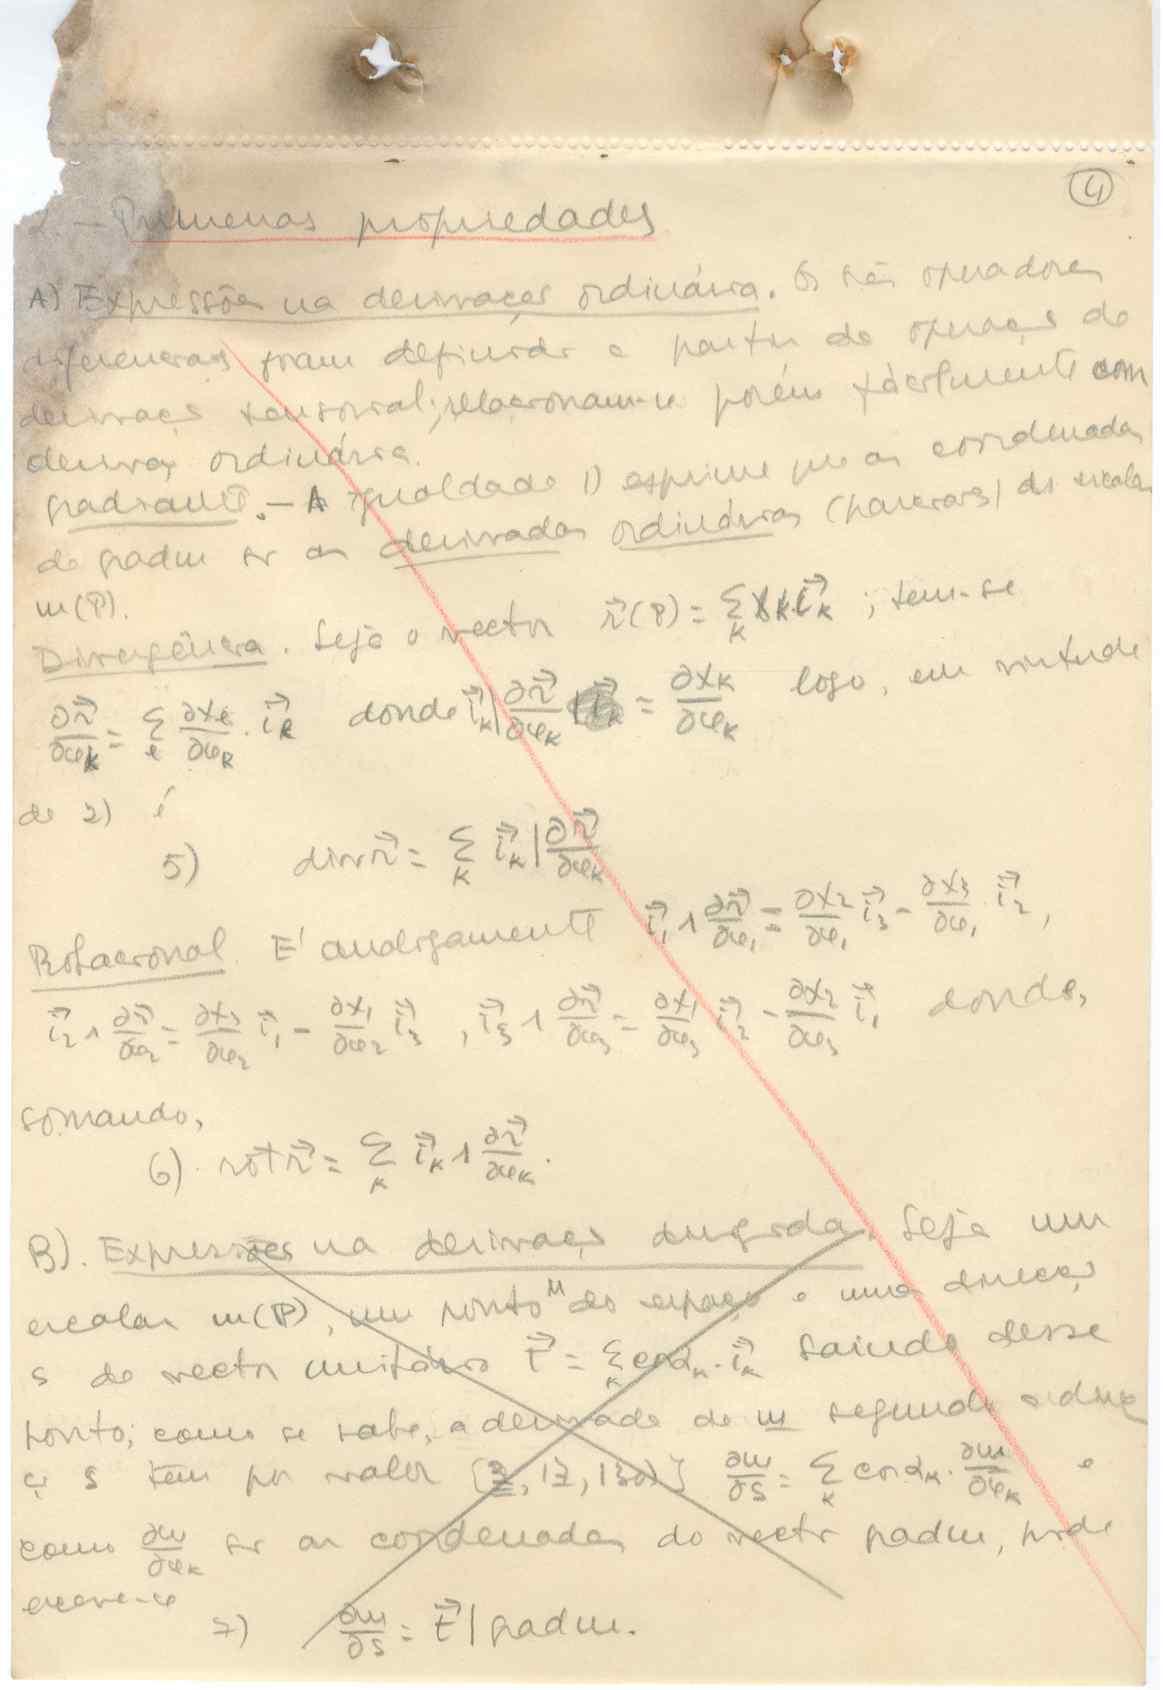 4
2. — Primeiras propriedades
A) Expressões na derivação ordinária. Os três operadores
diferenciais foram definidos a partir da operação de
derivação tensorial; relacionam-se porém facilmente com
derivação ordinária.
Gradiente. — A igualdade 1) exprime que as coordenadas
de grad m são as derivadas ordinárias (parciais) do escalar
m(P).
Divergência. Seja o vector r⃗(P) = Σ_K x_K i⃗_K ; tem-se
∂r⃗/∂φ_K = Σ_l ∂x_l/∂φ_K · i⃗_l donde i⃗_K | ∂r⃗/∂φ_K = ∂x_K/∂φ_K logo, em virtude
de 2) é
5) div r⃗ = Σ_K i⃗_K | ∂r⃗/∂φ_K
Rotacional. É analogamente i⃗_1 ∧ ∂r⃗/∂φ_1 = ∂x_2/∂φ_1 i⃗_3 − ∂x_3/∂φ_1 · i⃗_2,
i⃗_2 ∧ ∂r⃗/∂φ_2 = ∂x_3/∂φ_2 i⃗_1 − ∂x_1/∂φ_2 i⃗_3 , i⃗_3 ∧ ∂r⃗/∂φ_3 = ∂x_1/∂φ_3 i⃗_2 − ∂x_2/∂φ_3 i⃗_1 donde,
somando,
6) . rot r⃗ = Σ_K i⃗_K ∧ ∂r⃗/∂φ_K .
B). Expressões na derivação dirigida. Seja um
escalar m(P), um ponto M do espaço e uma direcção
s de vector unitário t⃗ = Σ_K cos α_K · i⃗_K saindo desse
ponto; como se sabe, a derivada de m segundo a direc
ção s tem por valor [3, 17, 130)] ∂m/∂s = Σ_K cos α_K · ∂m/∂φ_K e
como ∂m/∂φ_K são as coordenadas do vector grad m, pode
escrever-se
7) ∂m/∂s = t⃗ | grad m.